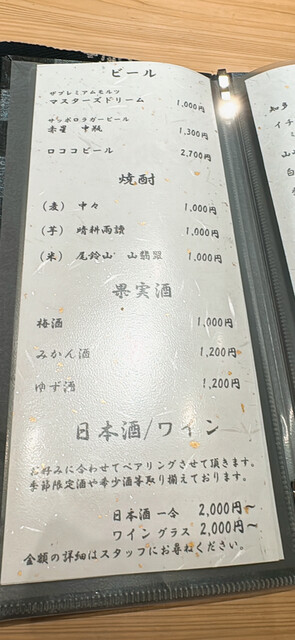 ビール
ザプレミアムモルツ
マスターズドリーム 1,000円
サッポロラガービール
赤星 中瓶 1,300円
ロココビール 2,700円
焼酎
(麦) 中々 1,000円
(芋) 晴耕雨讀 1,000円
(米) 尾鈴山 山翡翠 1,000円
果実酒
梅酒 1,000円
みかん酒 1,200円
ゆず酒 1,200円
日本酒/ワイン
お好みに合わせてペアリングさせて頂きます。
季節限定酒や希少酒等取り揃えております。
日本酒 一合 2,000円~
ワイン グラス 2,000円~
金額の詳細はスタッフにお尋ねください
知多
イチ
山
白